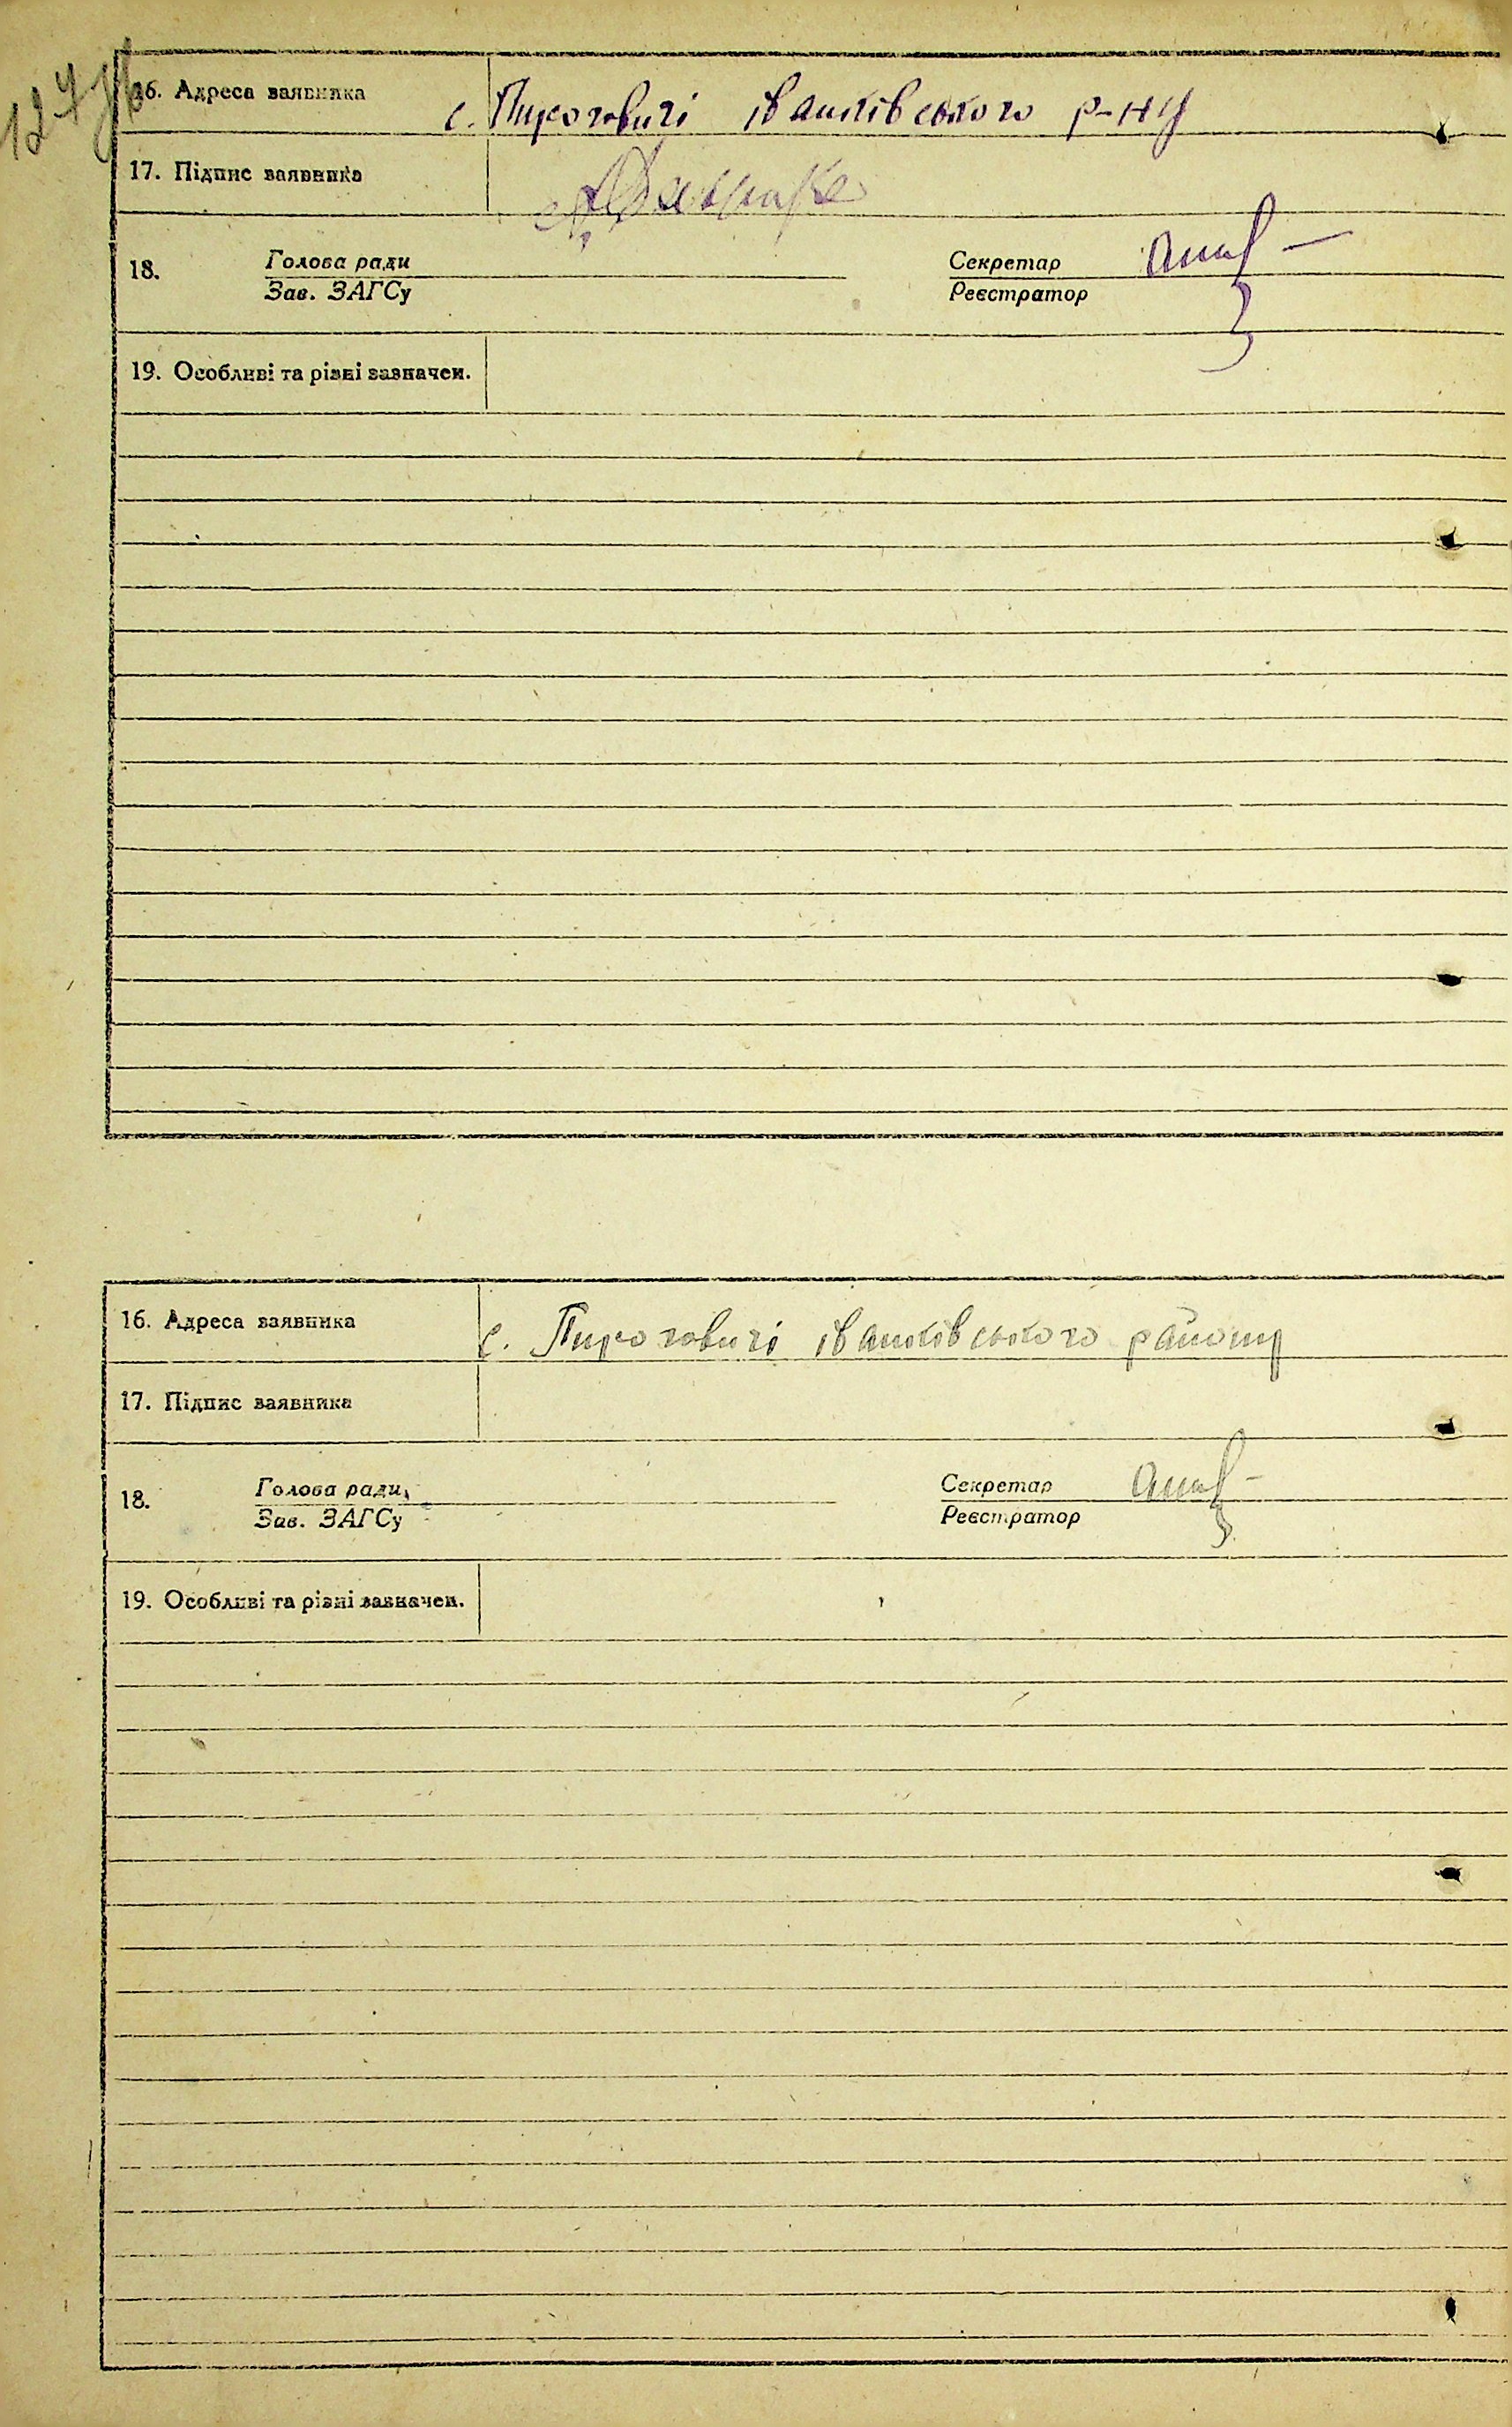 16. Адреса заявника с. Пироговичі іванківського р-ну
17. Підпис заявника
18. Голова ради Секретар
Зав. ЗАГСу Реєстратор
19. Особливі та різні зазначен.
16. Адреса заявника с. Пироговичі іванківського району
17. Підпис заявника
18. Голова ради Секретар
Зав. ЗАГСу Реєстратор
19. Особливі та різні зазначен.